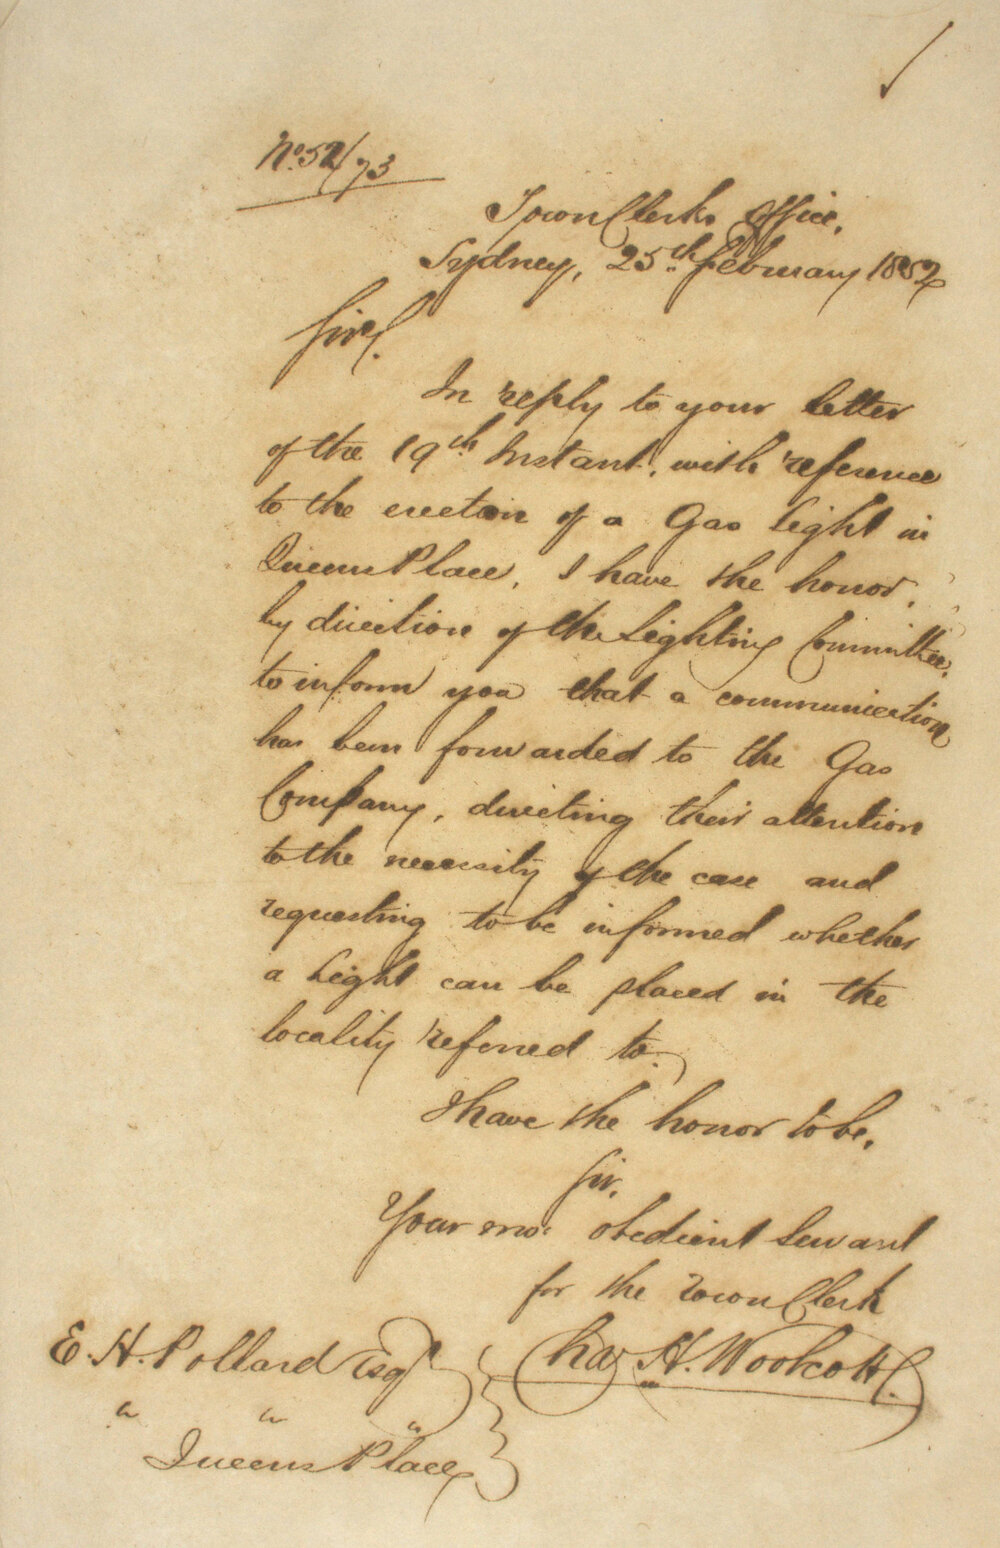 No. 52/73
Town Clerks Office,
Sydney, 25th February 1852
Sir,
In reply to your letter
of the 19th Instant, with reference
to the erection of a Gas Light in
Queens Place, I have the honor,
by direction of the Lighting Committee,
to inform you that a communication
has been forwarded to the Gas
Company, directing their attention
to the necessity of the case and
requesting to be informed whether
a Light can be placed in the
locality referred to.
I have the honor to be,
Sir,
Your mo: obedient Servant
for the Town Clerk
Chas H. Woolcott.
E. H. Pollard Esqr
" " "
Queens Place